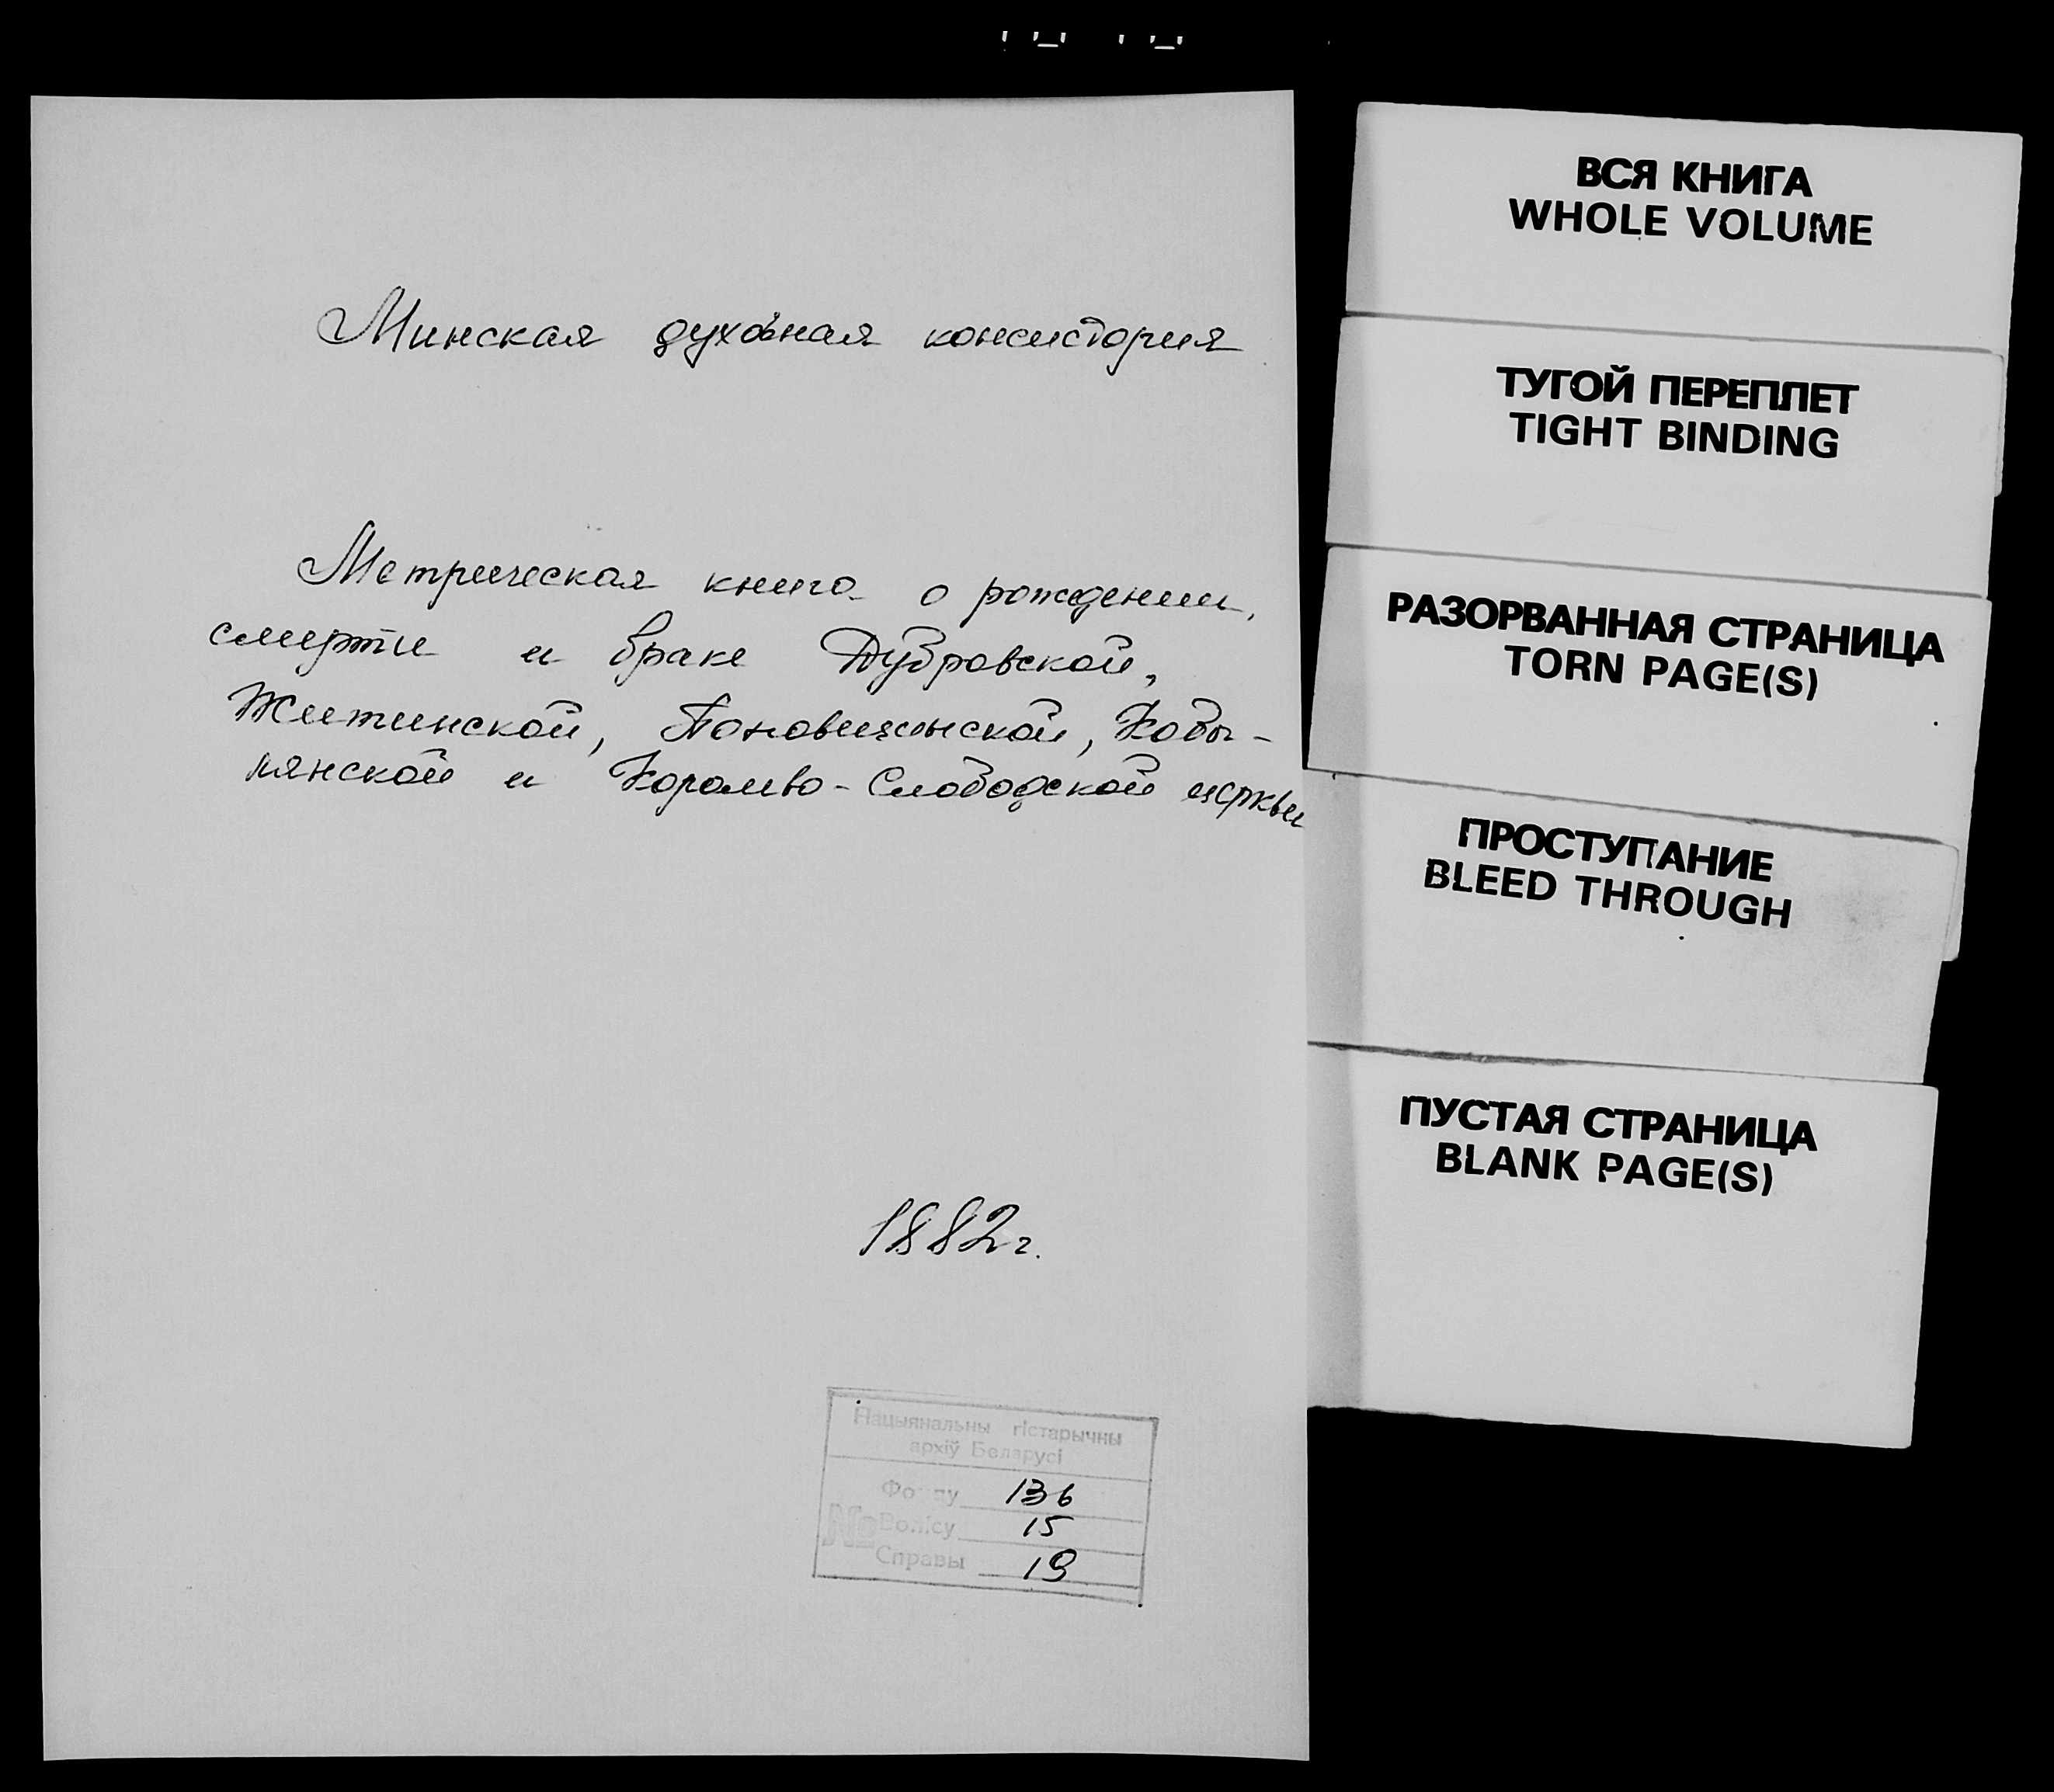 Минская духовная консистория
Метрическая книга о рождении,
смерти и браке Дубровской,
Житинской, Поновщинской, Кобы-
лянской и Королево-Слободской церквы
1882 г.
Нацыянальны гістарычны
архіў Беларусі
Фонду 136
№ Вопісу 15
Справы 19
ВСЯ КНИГА
WHOLE VOLUME
ТУГОЙ ПЕРЕПЛЕТ
TIGHT BINDING
РАЗОРВАННАЯ СТРАНИЦА
TORN PAGE(S)
ПРОСТУПАНИЕ
BLEED THROUGH
ПУСТАЯ СТРАНИЦА
BLANK PAGE(S)